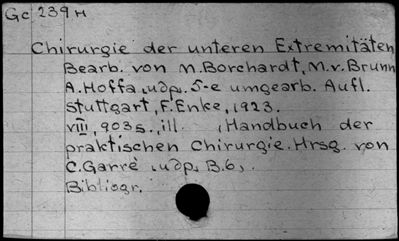 Gc 239 H
Chirurgie der unteren Extremitäten
Bearb. von M. Borchardt, M. v. Brunn
A. Hoffa, udp, 5-e umgearb. Aufl.
Stuttgart, F. Enke, 1923.
VIII, 903 s., ill. (Handbuch der
praktischen Chirurgie. Hrsg. von
C. Garrè udp, B. 6,.
Bibliogr.